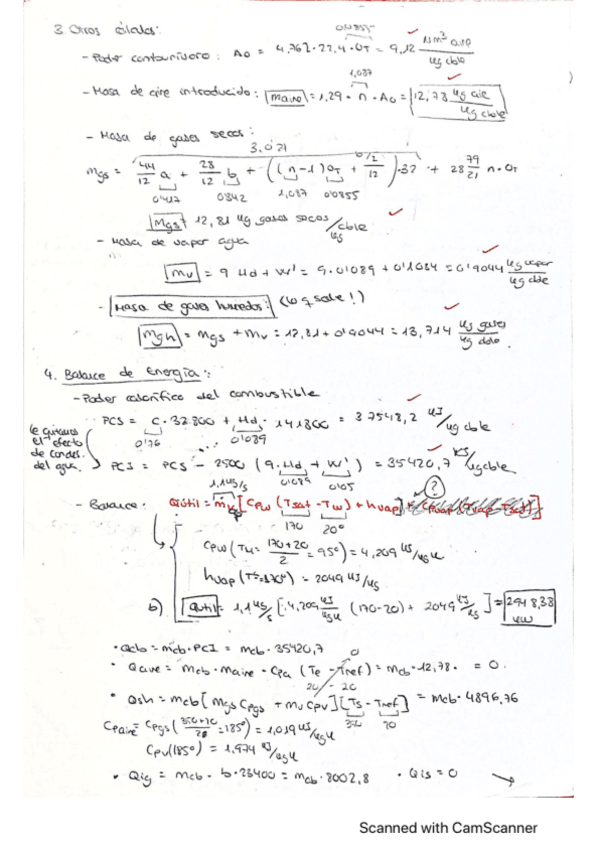 3. Otros cálculos:
0'0855
- Poder comburívoro: Ao = 4,762·22,4·OT = 9,12 Nm³ aire / kg cble
1,087
- Masa de aire introducido: maire = 1,29·n·Ao = 12,78 kg aire / kg cble
- Masa de gases secos:
3.021
mgs = 44/12 a + 28/12 b + ((n-1) OT + b/2 / 12)·32 + 28 79/21 n·OT
0'417 0'342 1,087 0'0855
mgs = 12,81 kg gases secos / kg cble
- Masa de vapor agua
mv = 9 Hd + W' = 9·0'089 + 0'1034 = 0'9044 kg vapor / kg cble
- Masa de gases húmedos: (lo q sale!)
mgh = mgs + mv = 12,81 + 0'9044 = 13,714 kg gases / kg cble.
4. Balance de Energía:
- Poder calorífico del combustible
PCS = C·32800 + Hd·141800 = 37548,2 kJ/kg cble
0'76 0'089
le quitamos el efecto de conden. del agua.
PCI = PCS - 2500 (9·Hd + W') = 35420,7 kJ/kg cble
1,1 kg/s 0'089 0'05
?
- Balance: Qútil = ṁv [Cpw (Tsat - Tw) + hvap]
170 20º
Cpw (TM = 170+20 / 2 = 95º) = 4,209 kJ/kgK
hvap (T = 170º) = 2049 kJ/kg
b) Qútil = 1,1 kg/s [4,209 kJ/kgK (170-20) + 2049 kJ/kg] = 2948,38 kW
· Qcb = ṁcb·PCI = mcb·35420,7
0
· Qaire = mcb·maire·Cpa (Te - Tref) = mcb·12,78· = 0.
20 - 20
· Qsh = mcb [mgs Cpgs + mv Cpv] [Ts - Tref] = mcb·4896,76
350 20
Cpaire = Cpgs (350+20 / 2 = 185º) = 1,019 kJ/kgK
Cpv (185º) = 1,974 kJ/kgK
· Qig = mcb·b·23400 = mcb·8002,8 · Qis = 0
Scanned with CamScanner